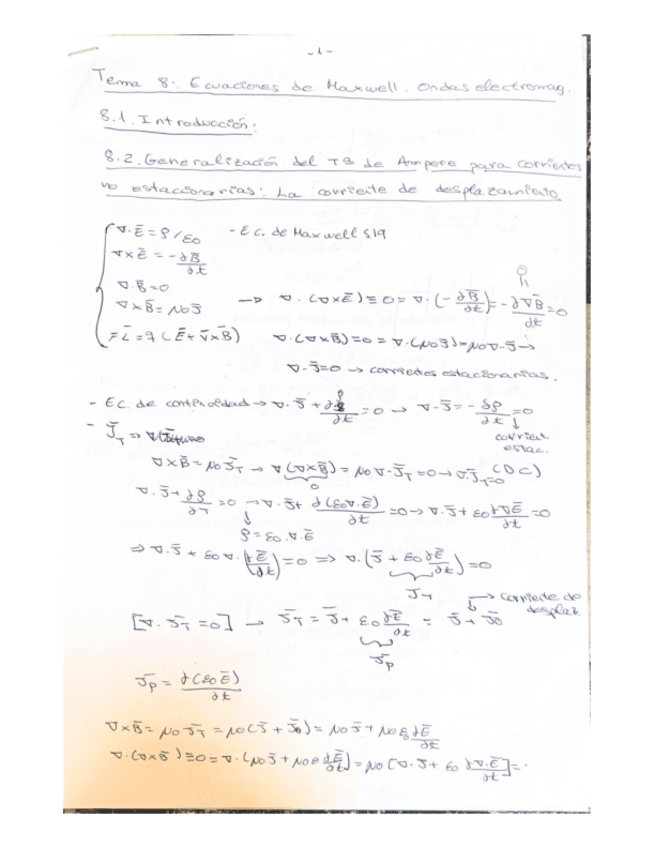 -1-
Tema 8: Ecuaciones de Maxwell. Ondas electromag.
8.1. Introducción:
8.2. Generalización del Tª de Ampere para corrientes
no estacionarias: La corriente de desplazamiento.
∇·Ē = ρ/ε0 - Ec. de Maxwell S.19
∇×Ē = -∂B̄/∂t
∇·B̄ = 0
∇×B̄ = μ0J̄ → ∇·(∇×Ē) ≡ 0 = ∇·(-∂B̄/∂t) = -∂∇B̄/∂t = 0
F̄L = q(Ē + v̄×B̄) ∇·(∇×B̄) = 0 = ∇·(μ0J̄) = μ0∇·J̄ →
∇·J̄ = 0 → corrientes estacionarias.
- Ec. de continuidad → ∇·J̄ + ∂ρ/∂t = 0 → ∇·J̄ = -∂ρ/∂t = 0
↓ corrient. estac.
- J̄T ⇒
∇×B̄ = μ0J̄T → ∇(∇×B̄) = μ0∇·J̄T = 0 → ∇·J̄T = 0 (DC)
0
∇·J̄ + ∂ρ/∂t = 0 → ∇·J̄ + ∂(ε0∇·Ē)/∂t = 0 → ∇·J̄ + ε0 ∂∇Ē/∂t = 0
↓
ρ = ε0·∇·Ē
⇒ ∇·J̄ + ε0∇·(∂Ē/∂t) = 0 ⇒ ∇·(J̄ + ε0∂Ē/∂t) = 0
J̄T
→ Corriente de desplaz.
[∇·J̄T = 0] → J̄T = J̄ + ε0∂Ē/∂t = J̄ + J̄D
J̄D
J̄D = ∂(ε0Ē)/∂t
∇×B̄ = μ0J̄T = μ0(J̄ + J̄D) = μ0J̄ + μ0ε∂Ē/∂t
∇·(∇×B̄) ≡ 0 = ∇·(μ0J̄ + μ0ε∂Ē/∂t) = μ0[∇·J̄ + ε0 ∂∇·Ē/∂t] =